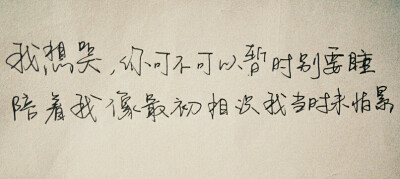 我想哭，你可不可以暂时别要睡
陪着我像最初相次我当时未怕累